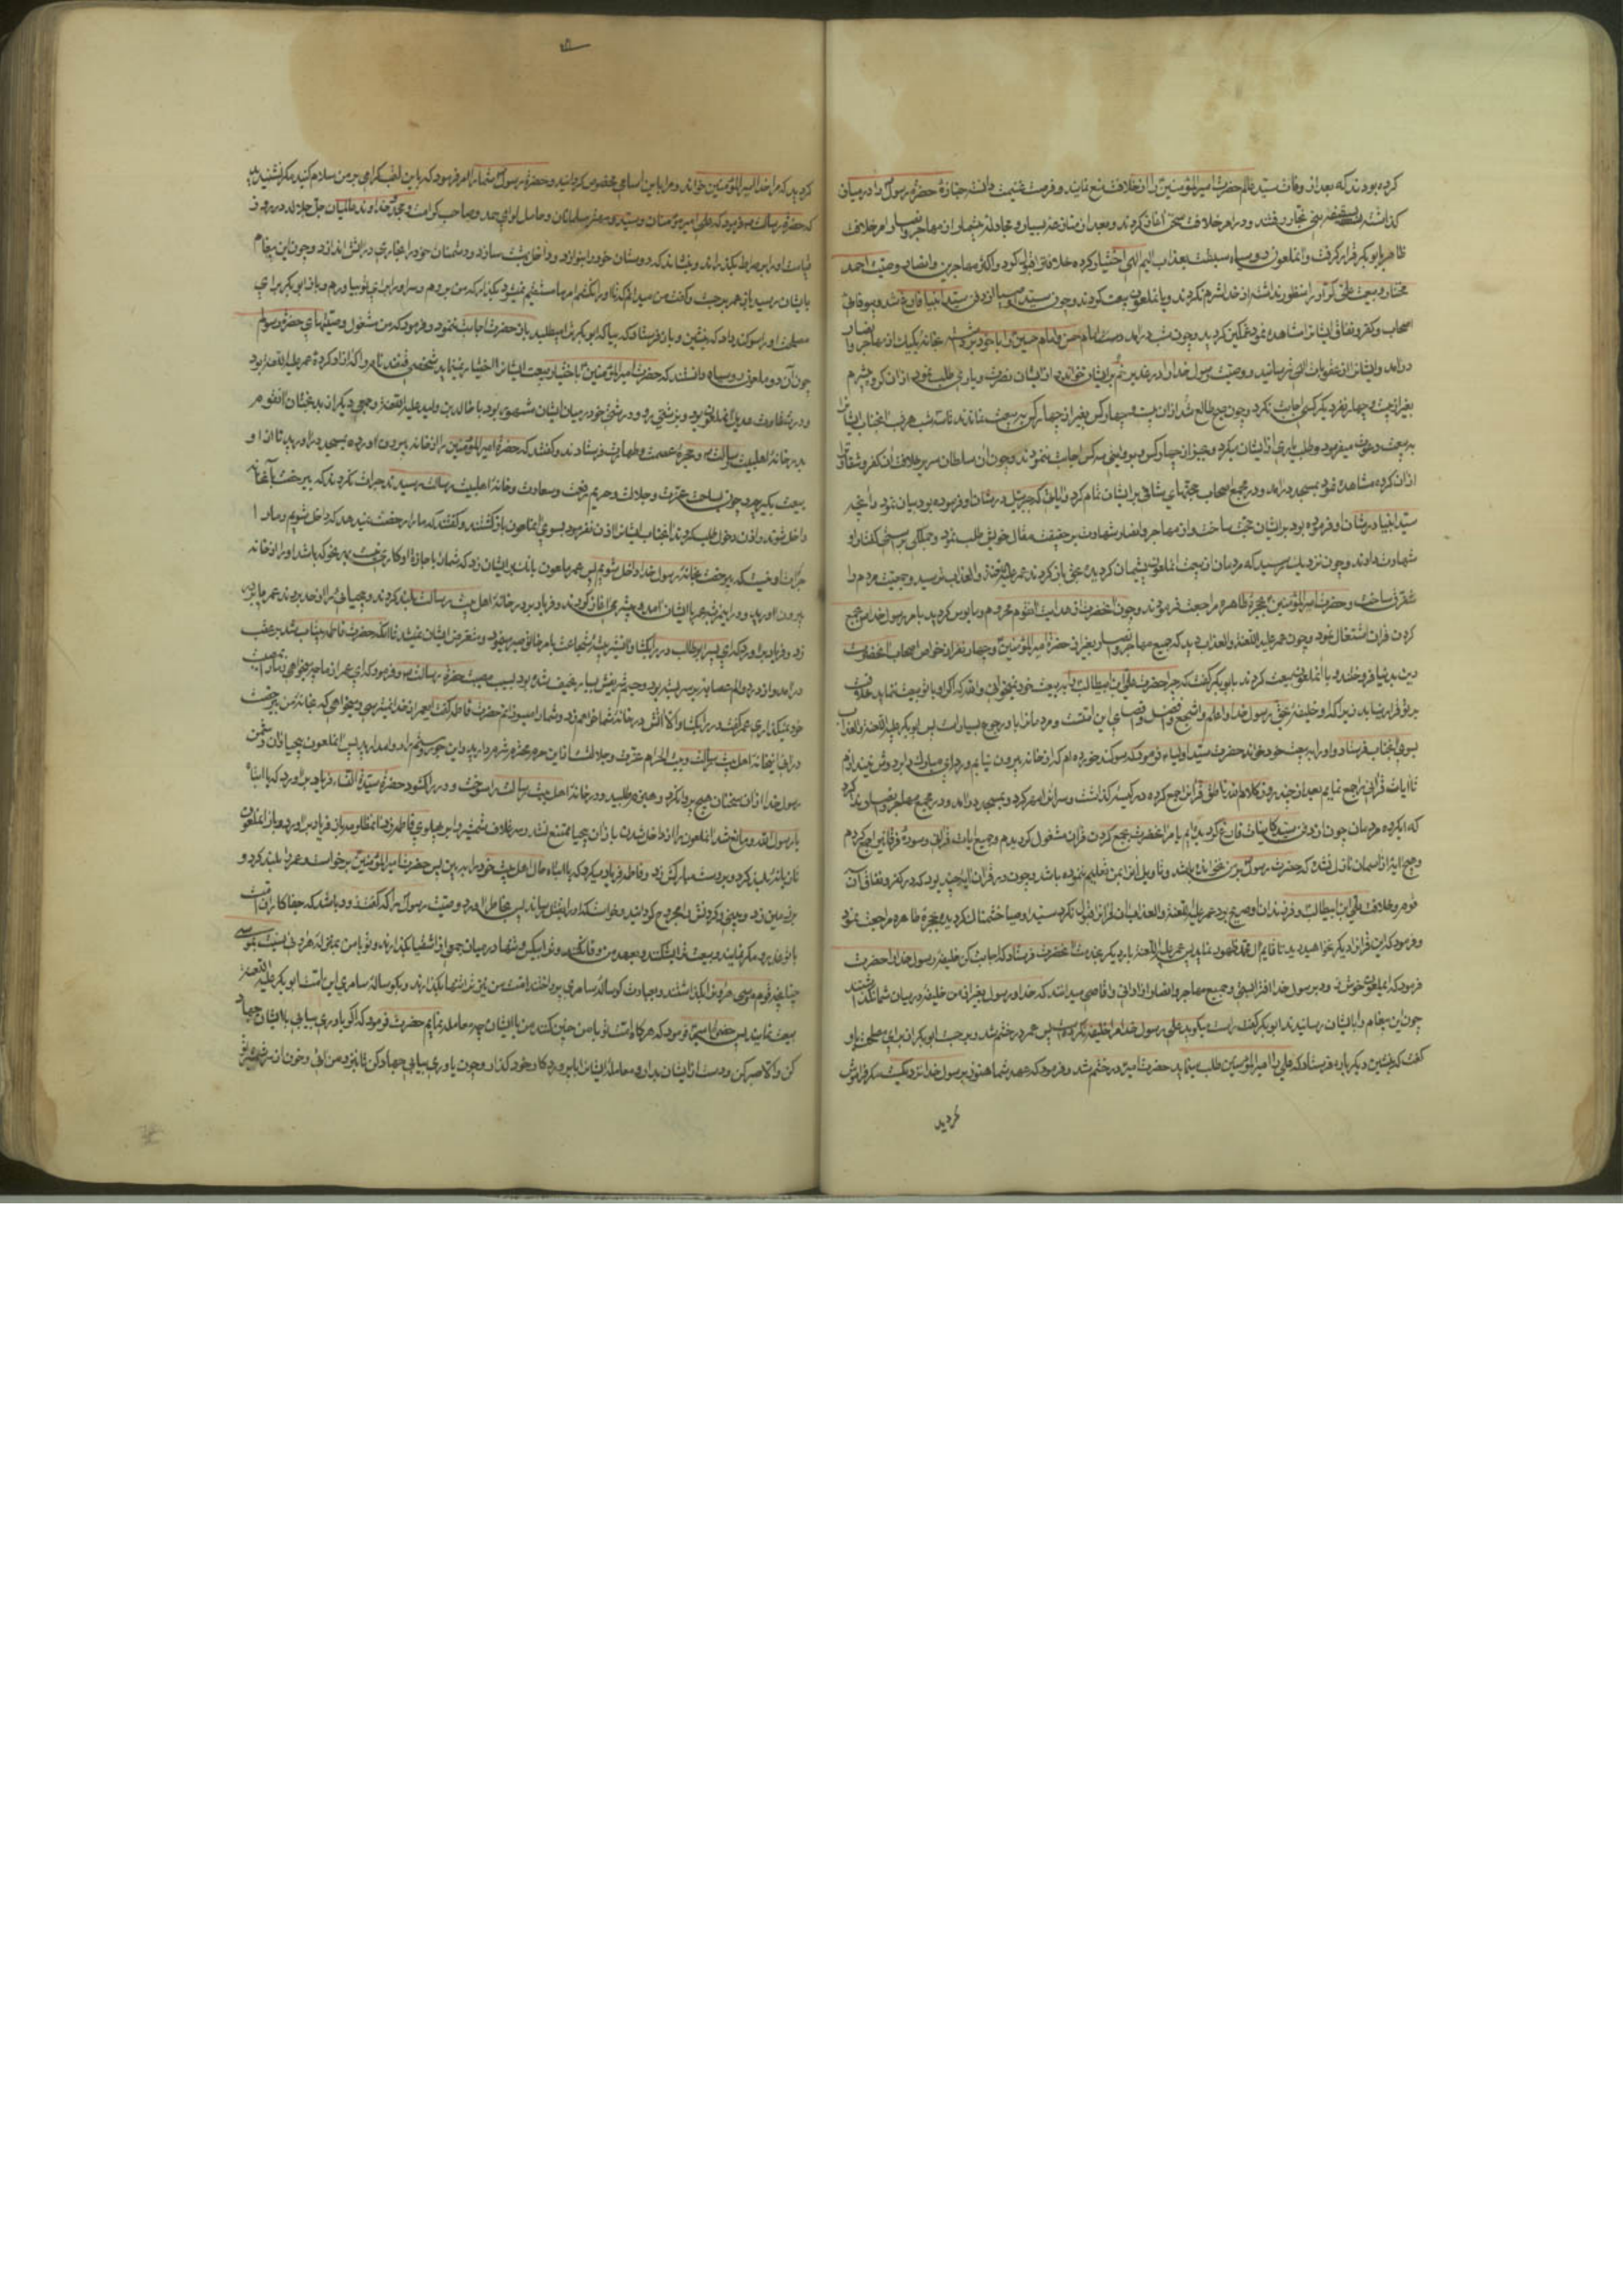 کرده بودند که بعد از وفات سید عالم حضرت امیرالمؤمنین را از خلافت منع نمایند و فرصت غنیمت دانسته جنازهٔ حضرت رسول را در میان
کذاشته بسقیفه بنی رفتند و در امر خلافت سخن آغاز کردند و بعد از منازعهٔ بسیار و مجادلهٔ بیشمار از مهاجر و انصار امر خلافت
ظاهر بابوبکر قرار کرفت و آنملعون روسیاه سبقت بعذاب الیم الهی اختیار کرده خلافت را قبول کرد و اکثر مهاجرین و انصار وصیت احمد
مختار و بیعت علی را منظور نداشته از خدا شرم نکردند و با آنملعون بیعت کردند و چون سید اوصیا از دفن سید انبیا فارغ شد و بیوفائی
اصحاب و کفر و نفاق ایشانرا مشاهده نمود غمکین کردید و چون شب درآمد دست امام حسن و امام حسین را با خود بخانهٔ یکیک از مهاجر و انصار
درآمد و ایشانرا از عقوبات الهی ترسانید و وصیت رسول خدا را در غدیر خم بر ایشان خواند و از ایشان نصرت و یاری طلب نمود از ان کروه بیشرم
بغیر از بیست و چهار نفر دیکر کسی اجابت نکرد و چون صبح طالع شد از ان بیست و چهار کس بغیر از چهار کس بر بیعت نماندند تا سه شب هر شب آنجناب ایشانرا
به بیعت دعوت میفرمود و طلب یاری از ایشان میکرد و بجز از چهار کس و بروایتی سه کس اجابت ننمودند و چون آن سلطان سریر خلافت آن کفر و شقاق را
از ان کروه مشاهده نمود بمسجد درآمد و در مجمع اصحاب حجتهای شافی بر ایشان تمام کرد و آیاتی که جبرئیل در شان او فرموده بود بیان نمود و آنچه
سید انبیا در شان او فرموده بود بر ایشان حجت ساخت و از مهاجر و انصار شهادت بر حقیقت مقال خویش طلب نمود و همکی بر کفتار او
شهادت دادند و چون نزدیک رسید که مردمان از بیعت آنملعون پشیمان کردیده بحق بازکردند عمر علیه اللعنة والعذاب ترسید و جمعیت مردم را
متفرق ساخت و حضرت امیرالمؤمنین بحجرهٔ طاهره مراجعت فرمودند و چون آنحضرت از هدایت آنقوم محروم و مایوس کردید بامر رسول خدا بجمع
کردن قرآن اشتغال نمود و چون عمر علیه اللعنة والعذاب دید که جمیع مهاجر و انصار بغیر از حضرة امیرالمؤمنین و چهار نفر از خواص اصحاب آنحضرت
دین بدنیا فروختند و با آنملعون بیعت کردند بابوبکر کفت که چرا حضرت علی ابن ابیطالب را به بیعت خود نمیخوانی والله که اکر او با تو بیعت ننماید خلافت
بر تو قرار نیابد زیرا که او خلیفهٔ بحق رسول خدا و اعلم و اشجع و افضل این امتست و مردمانرا باو رجوع بسیار است پس ابوبکر علیه اللعنة والعذاب
بسوی آنجناب فرستاد و او را به بیعت خود خواند حضرت سید اولیا فرمود که سوکند خورده ام که از خانه بیرون نیایم و ردای مبارک را بر دوش نیندازم
تا آیات قرآنی را جمع نمایم بعد از چند روز کلام الله ناطق قرآنرا جمع کرده در کیسه کذاشت و سر انرا مهر کرد و بمسجد درآمد و در مجمع مهاجر و انصار ندا کرد
که ای کروه مردمان چون از دفن سید کاینات فارغ کردیدم بامر آنحضرت بجمع کردن قرآن مشغول کردیدم و جمیع آیات قرآنی و سورهٔ فرقانی را جمع کردم
و هیچ آیه از آسمان نازل نشده که حضرت رسول بر من نخوانده باشد و تاویل آنرا بمن تعلیم ننموده باشد و چون در قرآن آیهٔ چند بود که در کفر و نفاق آن
قوم و خلافت علی ابن ابیطالب و فرزندان او صریح بود عمر علیه اللعنة والعذاب آن قرآنرا قبول نکرد سید اوصیا خشمناک کردیده بحجرهٔ طاهره مراجعت نمود
و فرمود که این قرآنرا دیکر نخواهید دید تا قایم آل محمد ظهور نماید پس عمر علیه اللعنة بار دیکر بخدمت آنحضرت فرستاد که اجابت کن خلیفهٔ رسول خدا را حضرت
فرمود که ایملعون خوش زود بر رسول خدا افترا بستی و جمیع مهاجر و انصار و ادانی و اقاصی میدانند که خدا و رسول بغیر از من خلیفه در میان شما نکذاشتند
چون این پیغام را بایشان رسانیدند ابوبکر کفت راست میکوید علی رسول خدا مرا خلیفه نکرده است پس عمر در خشم شد و برجست ابوبکر از برای مصلحت باو
کفت که بنشین و دیکر باره فرستاد که علی را امیرالمؤمنین طلب مینماید حضرت امیر در خشم شد و فرمود که عهد شما هنوز برسول خدا نزدیکست مکر فراموش
کردید
کردید که مرا خدا امیرالمؤمنین خواند و مرا باین اسامی مخصوص کردانید و حضرة رسول شما را امر فرمود که باین لقب کرامی بر من سلام کنید مکر نشنیدید
که حضرة رسالت فرمود که علی امیر مؤمنان و سید و مهتر مسلمانان و حامل لوای حمد و صاحب کرامت و مجد است و خداوند عالمیان جل جلاله در روز
قیامت او را بر صراط بنشاند که دوستان خود را بنوازد و داخل بهشت سازد و دشمنان خود را بخواری در آتش اندازد و چون این پیغام
بایشان رسید باز عمر برجست و کفت من میدانم که تا او را نکشم امر ما مستقیم نمیشود بکذار که من بروم و سر او را برای تو بیاورم و باز ابوبکر برای
مصلحت او را سوکند داد که بنشین و باز فرستاد که بیا که ابوبکر ترا میطلبد باز حضرت اجابت ننمود و فرمود که من مشغول وصیتهای حضرة رسولم
چون آن دو ملعون روسیاه دانستند که حضرت امیرالمؤمنین باختیار بیعت ایشانرا اختیار نمینماید شخصی قنفذ نام را که آزاد کردهٔ عمر علیه اللعنة بود
و در شقاوت عدیل آنملعون بود و بزشتی رو و درشتی خو در میان ایشان مشهور بود با خالد بن ولید علیه اللعنة و جمعی دیکر از بدبختان آنقوم
بدر خانهٔ اهلبیت رسالت و حجرهٔ عصمت و طهارت فرستادند و کفتند که حضرة امیرالمؤمنین را از خانه بیرون آورده بمسجد درآورید تا از او
بیعت بکیریم چون بساحت عزت و جلالت و حریم رفعت و سعادت و خانهٔ اهلبیت رسالت رسیدند جرات نکردند که بیرخصت بآنخانه
داخل شوند و اذن دخول طلب کردند آنجناب ایشانرا اذن نفرمود بسوی آنملاعون بازکشتند و کفتند که ما را رخصت نمیدهد که داخل شویم و ما را
جرات او نیست که بیرخصت بخانهٔ رسول خدا داخل شویم پس عمر ملعون بانک بر ایشان زد که شما را باجازهٔ او کاری نیست بهر نحو که باشد او را از خانه
بیرون آورید و در این مرتبه عمر با ایشان آمد و بیشرمی آغاز کردند و فریاد بر در خانهٔ اهل بیت رسالت بلند کردند و بیحیائی را از حد بردند عمر پا بر در
زد و فریاد برآورد که ای پسر ابوطالب در را بکشا و آنشیر بیشهٔ شجاعت بامر خالق صبر مینمود و متعرض ایشان نمیشد تا آنکه حضرت فاطمه بیتاب شد بر عقب
در آمد و از درد و الم عصابه بر سر بسته بود و جسد شریفش بسیار نحیف شده بود بسبب مصیبت حضرة رسالت و فرمود که ای عمر از ما چه میخواهی ما را بمصیبت
خود نمیکذاری عمر کفت در را بکشا و الا آتش در خانهٔ شما خواهم زد و شما را میسوزانم حضرت فاطمه کفت ای عمر از خدا نمیترسی و میخواهی که بخانهٔ من بیرخصت
درآئی اینخانهٔ اهل بیت رسالت و بیت الحرام عزت و جلالت است از این حرم محترم شرم دارید و این جور و ستم را روا مدارید پس آنملعون بیحیا از ان دختر
رسول خدا از ان سخنان هیچ پروا نکرد و هیزم طلبید و در خانهٔ اهل بیت رسالت را سوخت و در را کشود حضرة سیدة النساء فریاد برآورد که یا ابتاه
یا رسول الله و مانع شد آنملعون را از داخل شدن باز آن بیحیا ممتنع نشد و سر غلاف شمشیر را بر پهلوی فاطمه زد آنمظلومه باز فریاد برآورد و باز آنملعون
تازیانه بلند کرد و بر دست مبارکش زد و فاطمه فریاد میکرد که یا ابتاه حال اهل بیت خود را ببین پس حضرت امیرالمؤمنین برخواست و عمر را بلند کرد و
بر زمین زد و بینی و کردنش را مجروح کردانید و خواست که او را بقتل رساند پس بخاطر آورد وصیت رسول را که زود باشد که جفاکاران امت
با تو غدر و مکر نمایند و بیعت ترا بشکنند و بعهد من وفا نکنند و ترا بیکس و تنها در میان جمعی از اشقیا بکذارند و تو با من بمنزلهٔ هرونی نسبت بموسی
چنانچه قوم موسی هرون را بکذاشتند و بعبادت کوسالهٔ سامری پرداختند امت من نیز ترا تنها بکذارند و بکوسالهٔ سامری این امت ابوبکر علیه اللعنة
بیعت نمایند پس حضرت امیر فرمود که هرکاه امت تو با من چنین کنند من با ایشان چه معامله نمایم حضرت فرمود که اکر یاوری بیابی با ایشان جهاد
کن و الا صبر کن و دست از ایشان بدار و معاملهٔ ایشانرا با پروردکار خود کذار و چون یاوری بیابی جهاد کن